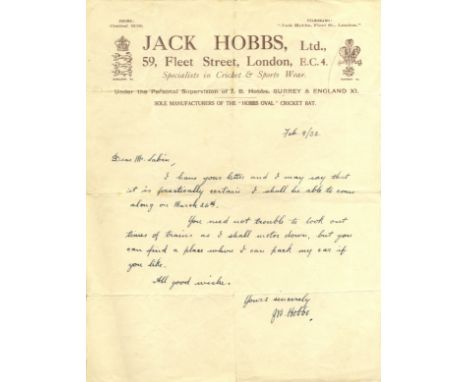 TELEGRAMS:
"Jack Hobbs, Fleet St., London."
JACK HOBBS, Ltd.,
59, Fleet Street, London, E.C.4.
Specialists in Cricket & Sports Wear.
Under the Personal Supervision of J. B. Hobbs, SURREY & ENGLAND XI.
SOLE MANUFACTURERS OF THE "HOBBS OVAL" CRICKET BAT.
Feb 9/32
Dear Mr.
I have your letter and I may say that
it is practically certain I shall be able to come
along on March 26th.
You need not trouble to look out
times of trains as I shall motor down, but you
can find a place where I can park my car if
you like.
All good wishes.
Yours sincerely
JB Hobbs.